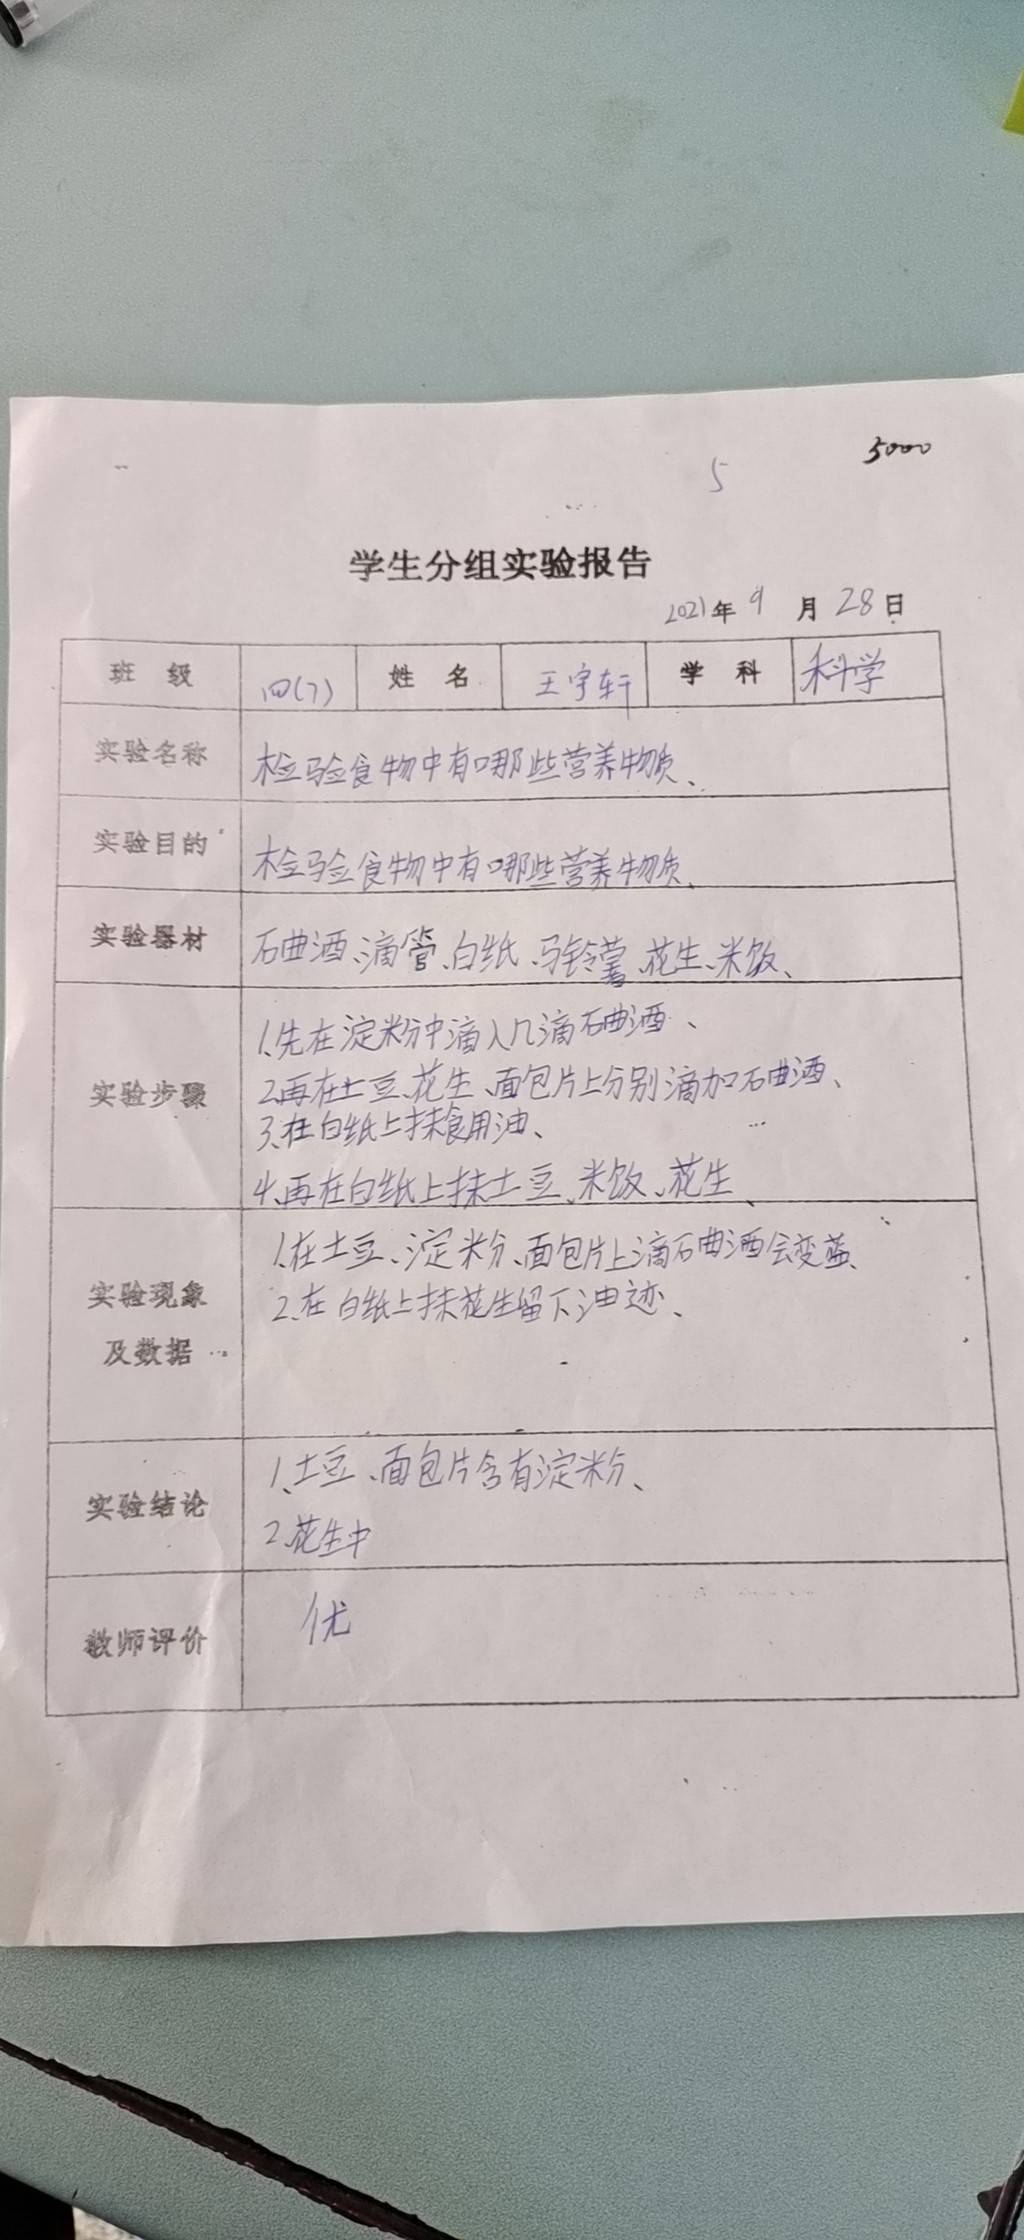 5000
5
学生分组实验报告
2021年9月28日
班 级 四(7) 姓 名 王宇轩 学 科 科学
实验名称 检验食物中有哪些营养物质、
实验目的 检验食物中有哪些营养物质、
实验器材 石曲酒、滴管、白纸、马铃薯、花生、米饭、
实验步骤
1、先在淀粉中滴入几滴石曲酒、
2、再在土豆、花生、面包片上分别滴加石曲酒、
3、在白纸上抹食用油、
4、再在白纸上抹土豆、米饭、花生、
实验现象
及数据
1、在土豆、淀粉、面包片上滴石曲酒会变蓝、
2、在白纸上抹花生留下油迹、
实验结论
1、土豆、面包片含有淀粉、
2、花生中
教师评价 优